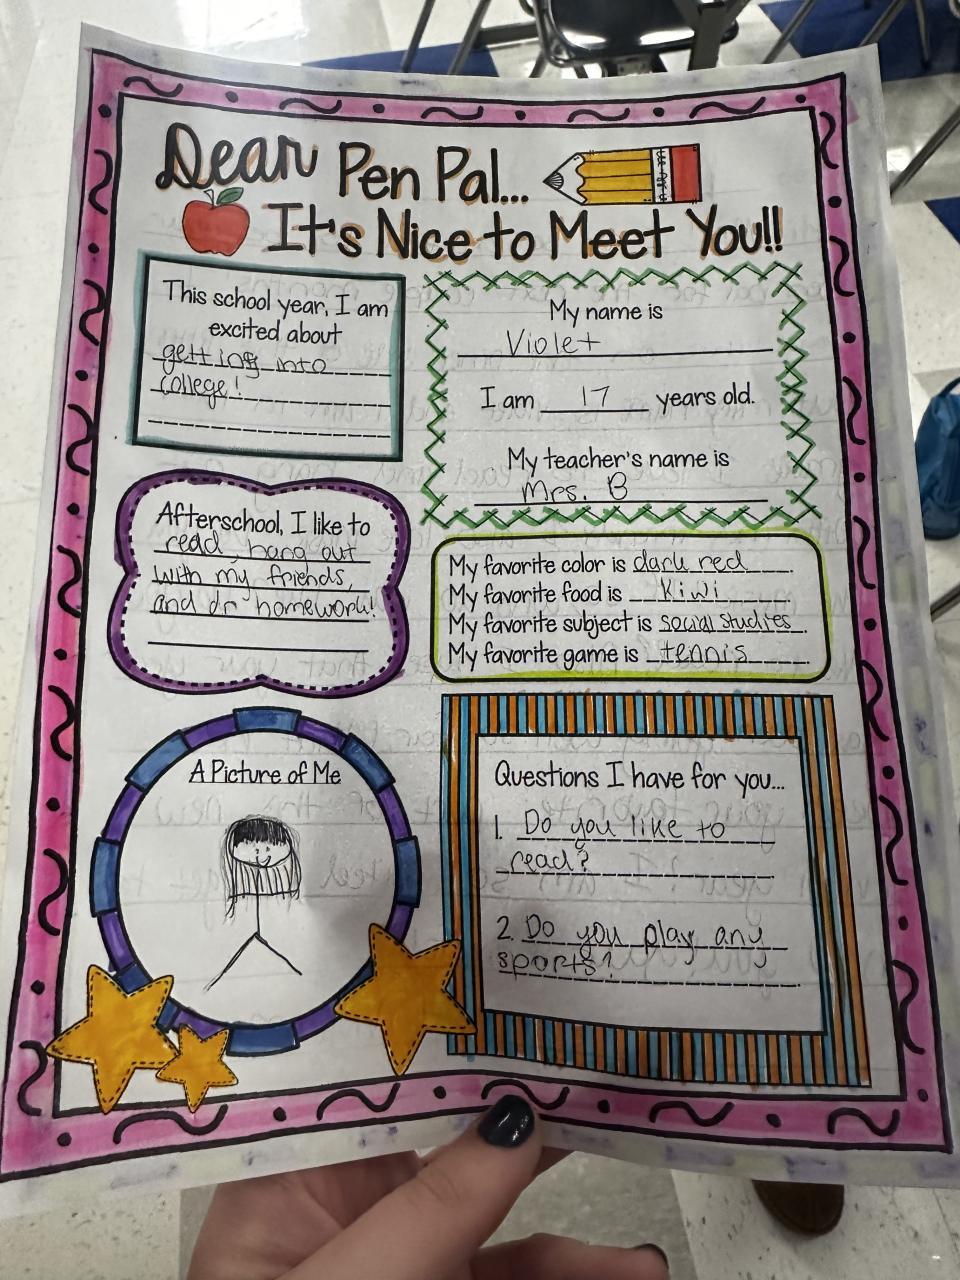 Dear Pen Pal...
It's Nice to Meet You!!
This school year, I am
excited about
getting into
college!
My name is
Violet
I am 17 years old.
My teacher's name is
Mrs. B
Afterschool, I like to
read, hang out
with my friends,
and do homework!
My favorite color is dark red.
My favorite food is Kiwi.
My favorite subject is social studies.
My favorite game is tennis.
A Picture of Me
Questions I have for you...
1. Do you like to
read?
2. Do you play any
sports?